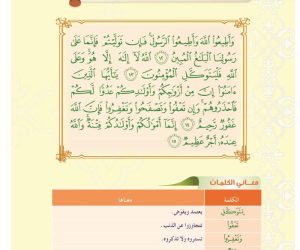 وَأَطِيعُوا۟ ٱللَّهَ وَأَطِيعُوا۟ ٱلرَّسُولَ ۚ فَإِن تَوَلَّيْتُمْ فَإِنَّمَا عَلَىٰ
رَسُولِنَا ٱلْبَلَـٰغُ ٱلْمُبِينُ ١٢ ٱللَّهُ لَآ إِلَـٰهَ إِلَّا هُوَ ۚ وَعَلَى
ٱللَّهِ فَلْيَتَوَكَّلِ ٱلْمُؤْمِنُونَ ١٣ يَـٰٓأَيُّهَا ٱلَّذِينَ
ءَامَنُوٓا۟ إِنَّ مِنْ أَزْوَٰجِكُمْ وَأَوْلَـٰدِكُمْ عَدُوًّا لَّكُمْ
فَٱحْذَرُوهُمْ ۚ وَإِن تَعْفُوا۟ وَتَصْفَحُوا۟ وَتَغْفِرُوا۟ فَإِنَّ ٱللَّهَ
غَفُورٌ رَّحِيمٌ ١٤ إِنَّمَآ أَمْوَٰلُكُمْ وَأَوْلَـٰدُكُمْ فِتْنَةٌ ۚ وَٱللَّهُ
عِندَهُۥٓ أَجْرٌ عَظِيمٌ ١٥
معاني الكلمات
الكلمة معناها
فَلْيَتَوَكَّلِ يعتمد ويفوض.
وَتَصْفَحُوا۟ تتجاوزوا عن الذنب.
وَتَغْفِرُوا۟ تستروه ولا تذكروه.